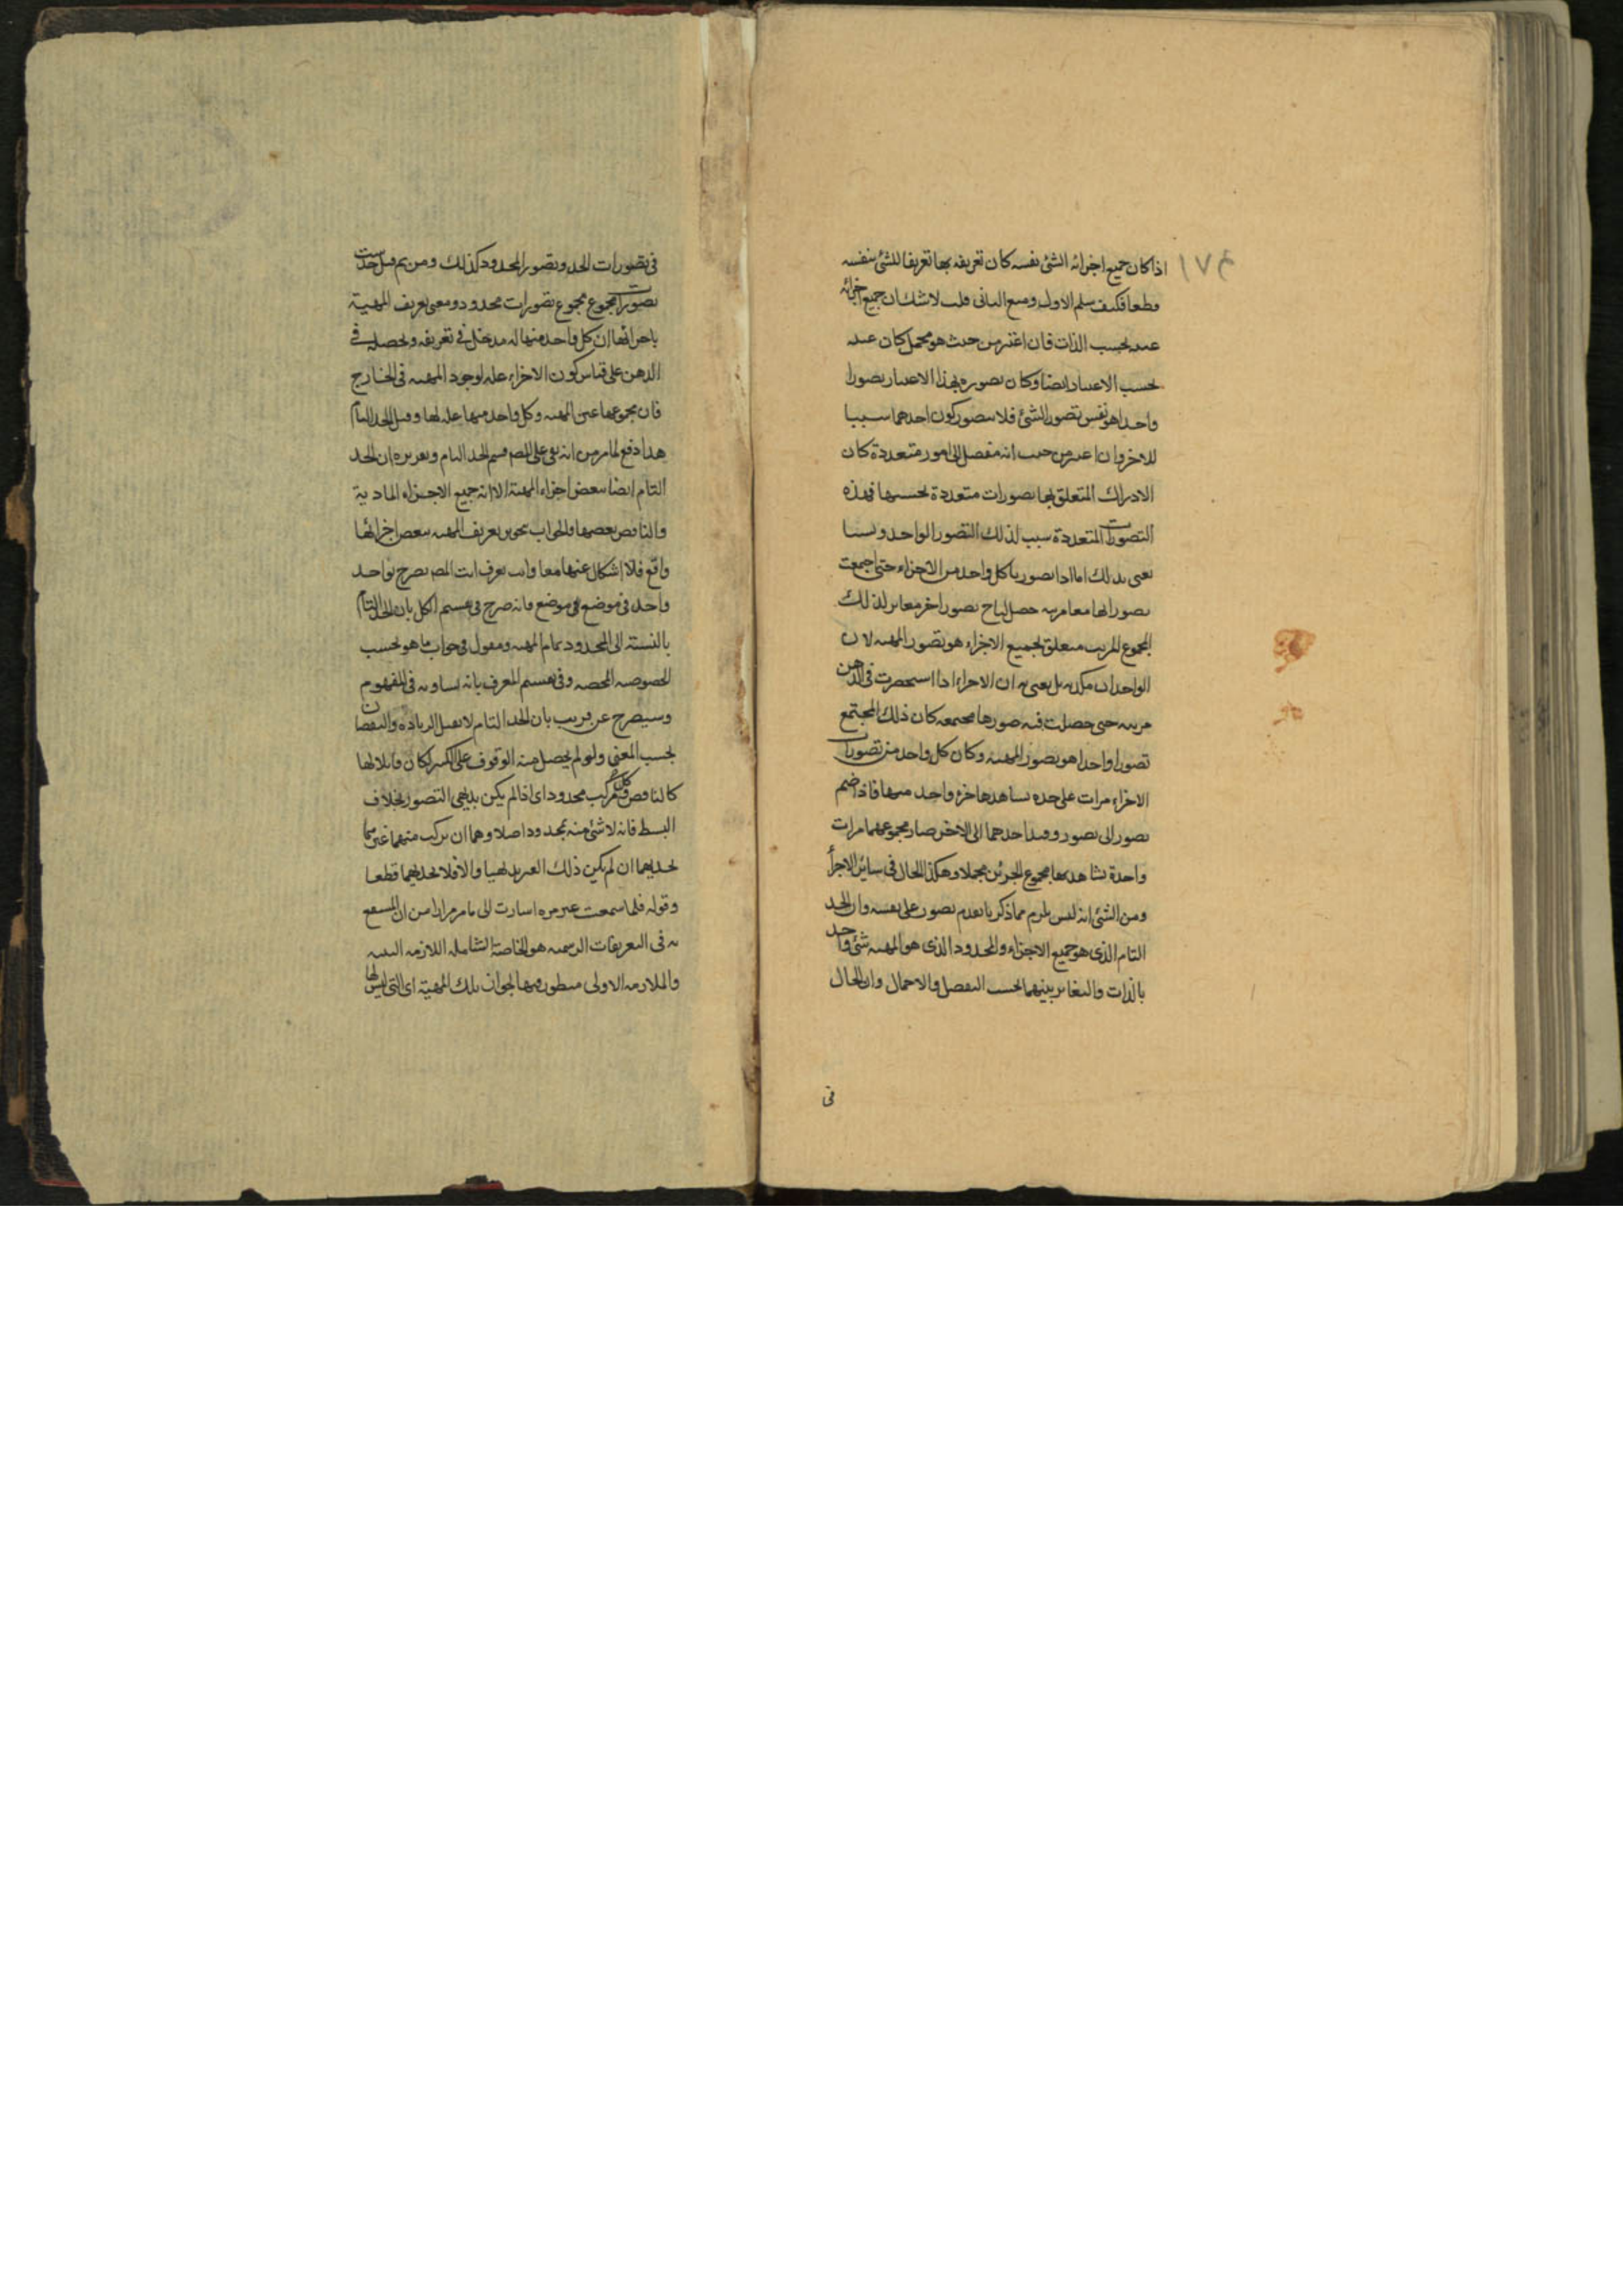 ١٧٤
اذا كان جميع اجزائه الشئ نفسه كان تعريفه بها تعريفا للشئ بنفسه
قطعا فكيف سلم الاول ومنع الثانى قلت لا شك ان جميع اجزائه
عينه بحسب الذات فان اعتبر من حيث هو مجمل كان عينه
بحسب الاعتبار ايضا وكان تصوره بهذا الاعتبار تصورا
واحدا هو نفس تصور الشئ فلا يتصور كون احدهما سببا
للاخر وان اعتبر من حيث انه مفصل الى امور متعددة كان
الادراك المتعلق بها تصورات متعددة بحسبها فهذه
التصورات المتعددة سبب لذلك التصور الواحد ولسنا
نعنى بذلك انا اذا تصورنا كل واحد من الاجزاء حتى اجمعت
تصوراتها معا مرتبة حصل لنا تصور اخر مغاير لذلك
المجموع المرتب متعلق بجميع الاجزاء هو تصور المهية لان
الوجدان يكذبه بل نعنى به ان الاجزاء اذا استحضرت فى الذهن
مرتبة حتى حصلت فيه صورها مجتمعة كان ذلك المجتمع
تصورا واحدا هو تصور المهية وكان كل واحد من تصورات
الاجزاء مرات على حده يشاهد بها جزء واحد منها فاذا ضم
تصور الى تصور وقيد احدهما الى الاخر صار مجموعهما مرات
واحدة نشاهد بها مجموع الجزئين مجملا وهكذا الحال فى سائر الاجزأ
ومن الشئ انه ليس يلزم مما ذكرنا تقدم تصور على نفسه وان الحد
التام الذى هو جميع الاجزاء والمحدود الذى هو المهية شئ واحد
بالذات والتغاير بينهما بحسب التفصيل والاجمال وان الحال
فى
فى تصورات الحد وتصور المحدود كذلك ومن ثم قيل حديث
تصور المجموع مجموع تصورات محدود ومعنى تعريف المهية
باجزائها ان كل واحد منها له مدخل فى تعريفه وتحصيله فى
الذهن على قياس كون الاجزاء علة لوجود المهية فى الخارج
فان مجموعها عين المهية وكل واحد منها علة لها وقيل الحد التام
هذا دفع لما مر من انه بقى على المص قسم الحد التام وتقريره ان الحد
التام ايضا ببعض اجزاء المهية الا انه جميع الاجزاء المادية
والناقص بعضها والجواب بحوير تعريف المهية ببعض اجزائها
واقع فلا اشكال عنهما معا وانت تعرف ان المص يصرح بواحد
واحد فى موضع موضع فانه صرح فى تقسيم الكل بان الحد التام
بالنسبة الى المحدود تمام المهية ومقول فى جواب ما هو بحسب
الخصوصية المحضة وفى تقسيم المعرف بانه يساويه فى المفهوم
وسيصرح عن قريب بان الحد التام لا يقبل الزيادة والنقصان
بحسب المعنى ولو لم يحصل منه الوقوف على الكنه لكان قابلا لها
كالناقص وكل مركب محدود اى اذا لم يكن بديهى التصور بخلاف
البسيط فانه لا شئ منه بمحدود اصلا وهما ان تركب منهما غيرهما
بحديهما ان لم يكن ذلك الغير بديهيا والا فلا يحد بهما قطعا
وقوله فلما سمعت غير مرة اشارت الى ما مر مرارا من ان المنتفع
به فى التعريفات الرسمية هو الخاصة الشاملة اللازمة البينة
والملازمة الاولى منظور فيها لجواز تلك المهية اى التى ليس لها